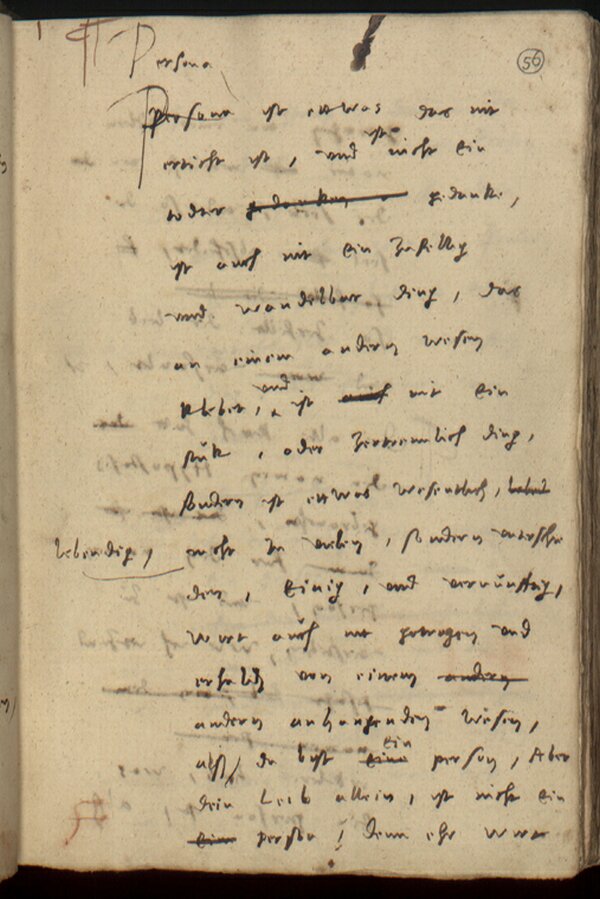 Persona
56
Persona ist ettwas das nit
erticht ist, und ist nicht ein
todter gedancken gedanke,
ist auch nit ein zufellig
und wandelbar ding, das
an einem andern wesen
klebet, und ist auch nit ein
stük, oder zertrennlich ding,
sondern ist ettwas wesentlich,
lebendig, nicht in vielen, sondern untersche
den, einig, und vernünftig,
wirt auch nit getragen und
erhalten von einem andern
andern anhangenden wesen,
alß, du bist eine ein person, Aber
dein Leib allein, ist nicht ein
ein person, denn ehr wirt